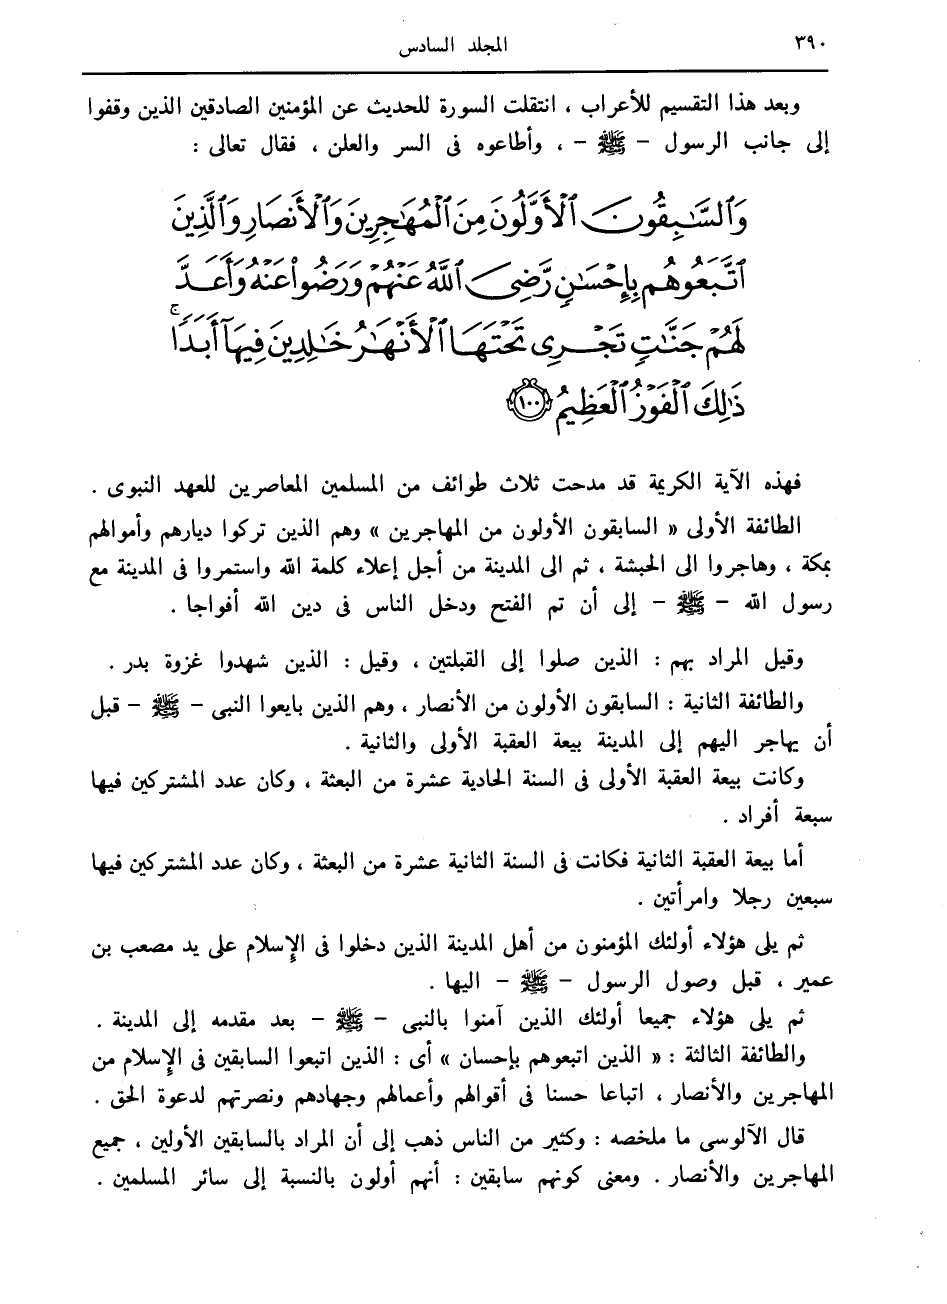 ٣٩٠ المجلد السادس
وبعد هذا التقسيم للأعراب ، انتقلت السورة للحديث عن المؤمنين الصادقين الذين وقفوا
إلى جانب الرسول – ﷺ – ، وأطاعوه فى السر والعلن ، فقال تعالى :
وَٱلسَّـٰبِقُونَ ٱلْأَوَّلُونَ مِنَ ٱلْمُهَـٰجِرِينَ وَٱلْأَنصَارِ وَٱلَّذِينَ
ٱتَّبَعُوهُم بِإِحْسَـٰنٍ رَّضِىَ ٱللَّهُ عَنْهُمْ وَرَضُوا۟ عَنْهُ وَأَعَدَّ
لَهُمْ جَنَّـٰتٍ تَجْرِى تَحْتَهَا ٱلْأَنْهَـٰرُ خَـٰلِدِينَ فِيهَآ أَبَدًا ۚ
ذَٰلِكَ ٱلْفَوْزُ ٱلْعَظِيمُ ١٠٠
فهذه الآية الكريمة قد مدحت ثلاث طوائف من المسلمين المعاصرين للعهد النبوى .
الطائفة الأولى « السابقون الأولون من المهاجرين » وهم الذين تركوا ديارهم وأموالهم
بمكة ، وهاجروا الى الحبشة ، ثم الى المدينة من أجل إعلاء كلمة الله واستمروا فى المدينة مع
رسول الله – ﷺ – إلى أن تم الفتح ودخل الناس فى دين الله أفواجا .
وقيل المراد بهم : الذين صلوا إلى القبلتين ، وقيل : الذين شهدوا غزوة بدر .
والطائفة الثانية : السابقون الأولون من الأنصار ، وهم الذين بايعوا النبى – ﷺ – قبل
أن يهاجر اليهم إلى المدينة بيعة العقبة الأولى والثانية .
وكانت بيعة العقبة الأولى فى السنة الحادية عشرة من البعثة ، وكان عدد المشتركين فيها
سبعة أفراد .
أما بيعة العقبة الثانية فكانت فى السنة الثانية عشرة من البعثة ، وكان عدد المشتركين فيها
سبعين رجلا وامرأتين .
ثم يلى هؤلاء أولئك المؤمنون من أهل المدينة الذين دخلوا فى الإسلام على يد مصعب بن
عمير ، قبل وصول الرسول – ﷺ – اليها .
ثم يلى هؤلاء جميعا أولئك الذين آمنوا بالنبى – ﷺ – بعد مقدمه إلى المدينة .
والطائفة الثالثة : « الذين اتبعوهم بإحسان » أى : الذين اتبعوا السابقين فى الإسلام من
المهاجرين والأنصار ، اتباعا حسنا فى أقوالهم وأعمالهم وجهادهم ونصرتهم لدعوة الحق .
قال الآلوسى ما ملخصه : وكثير من الناس ذهب إلى أن المراد بالسابقين الأولين ، جميع
المهاجرين والأنصار . ومعنى كونهم سابقين : أنهم أولون بالنسبة إلى سائر المسلمين .